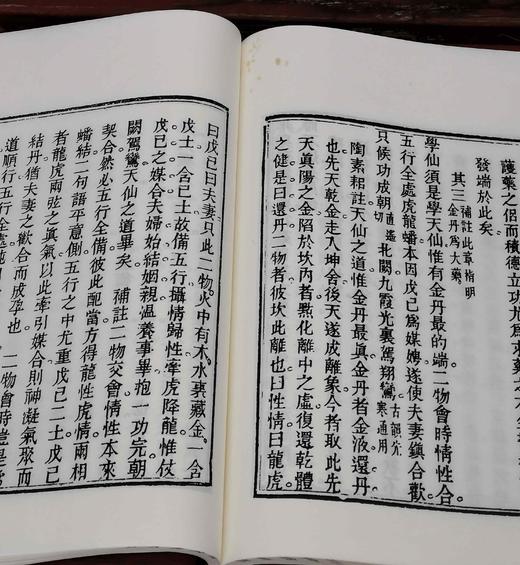 護藥之侶而積德立功尤爲
發端於此矣
其三 補註此章指明金丹爲大藥
學仙須是學天仙惟有金丹最的端二物會時情性合
五行全處虎龍蟠本因戊己爲媒娉遂使夫妻鎭合歡
只候功成朝切直遙北闕九霞光裏駕翔鸞古韻先寒通用
陶素耜註天仙之道惟金丹最眞金丹者金液還丹
也先天乾金走入坤舍後天遂成離象今者取此先
天眞陽之金陷於坎內者點化離中之虛復還乾體
之健是曰還丹二物者彼坎此離也曰性情曰龍虎
曰戊己曰夫妻只此二物火中有木水裏藏金一含
戊土一含己土故備五行攝情歸性牽虎降龍惟仗
戊己之媒合夫婦始結姻親溫養事畢抱一功完朝
闕駕鸞天仙之道畢矣 補註二物交會情性本來
契合然必五行全備彼此配當方得龍性虎情兩相
蟠結二句語平意側五行之中尤重戊己二土戊己
者龍虎兩弦之眞氣以此牽引媒合則神凝氣聚而
結丹猶夫妻之歡合而成孕也 二物會時豈是
道順行五行全